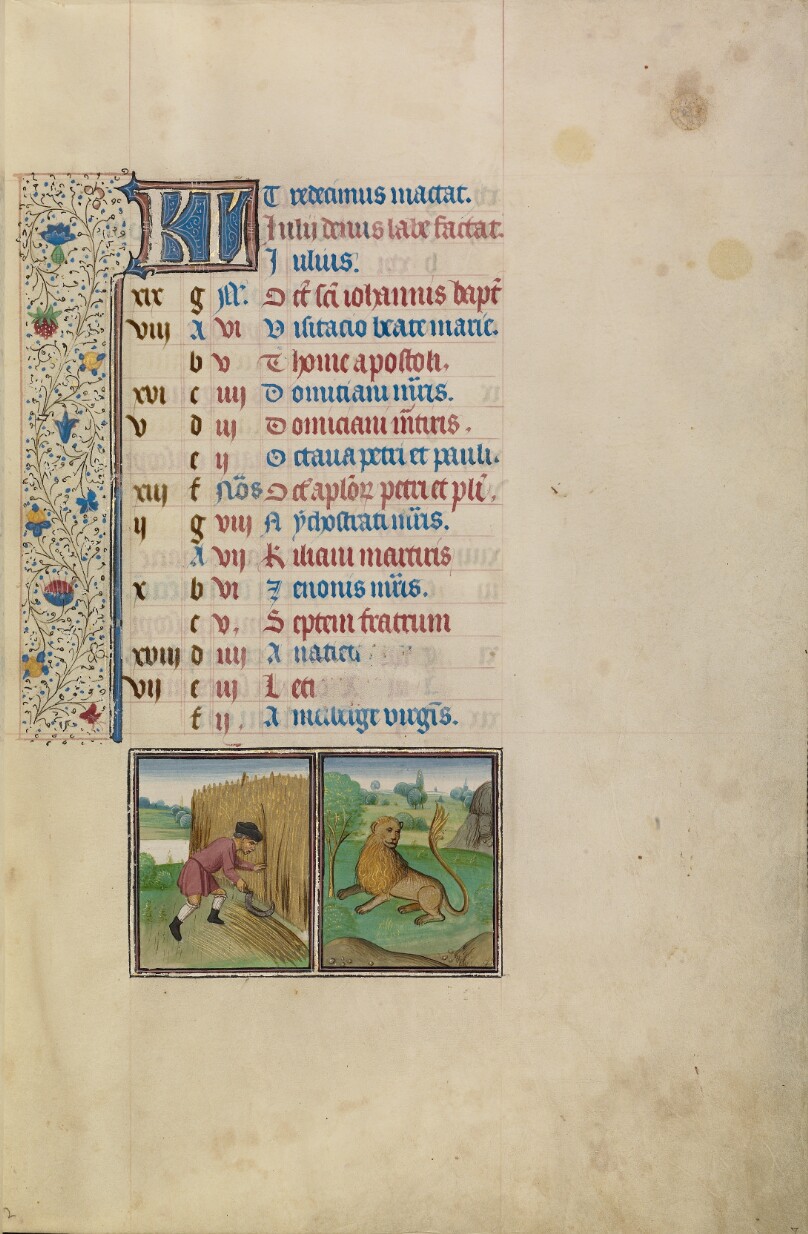 KL T redecimus mactat.
Iulii denus labe factat.
I ulius.
xix g kl. O ct̄ sc̄i iohannis bapt̄
viii A vi V isitacio beate marie.
b v T home apostoli.
xvi c iiii D omiciani m̄ris.
v d iii D omiciani m̄tiris.
e ii O ctaua petri et pauli.
xiii f Nōs O ct̄ aplōꝝ petri et pli̅.
ii g viii N ychostrati m̄ris.
A vii K iliani martiris
x b vi Z enonis m̄ris.
c v. S eptem fratrum
xviii d iiii A
vii e iii L eti
f ii. A virgīs.
2